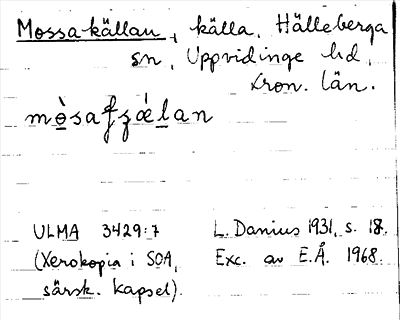 Mossa-källan, källa, Hälleberga
sn, Uppvidinge hd,
Kron. län.
ULMA 3429:7 L. Danius 1931, s. 18.
(Xerokopia i SOA, Exc. av E.Å. 1968.
särsk. kapsel).